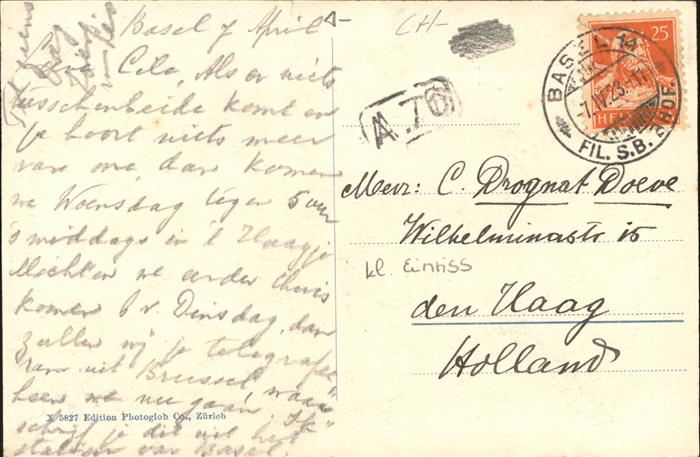 Basel 7 April
Lieve Cela, Als er niets
tusschenbeide komt en
je hoort niets meer
van ons, dan komen
we Woensdag tegen 5 uur
's middags in 't Haagje
Mochten we eerder thuis
komen b.v. Dinsdag, dan
zullen wij je telegrafeeren
uit Brussel waar
heen we nu gaan. Ik
schrijf je dit uit het
station van Basel.
X 5827 Edition Photoglob Co., Zürich
CH-
A.76
25
HELVETIA
BASEL 14
-7.IV.23.
FIL. S.B.
HOF.
Mevr: C. Drognat Doeve
Wilhelminastr 15
kl. Einriss
den Haag
Holland